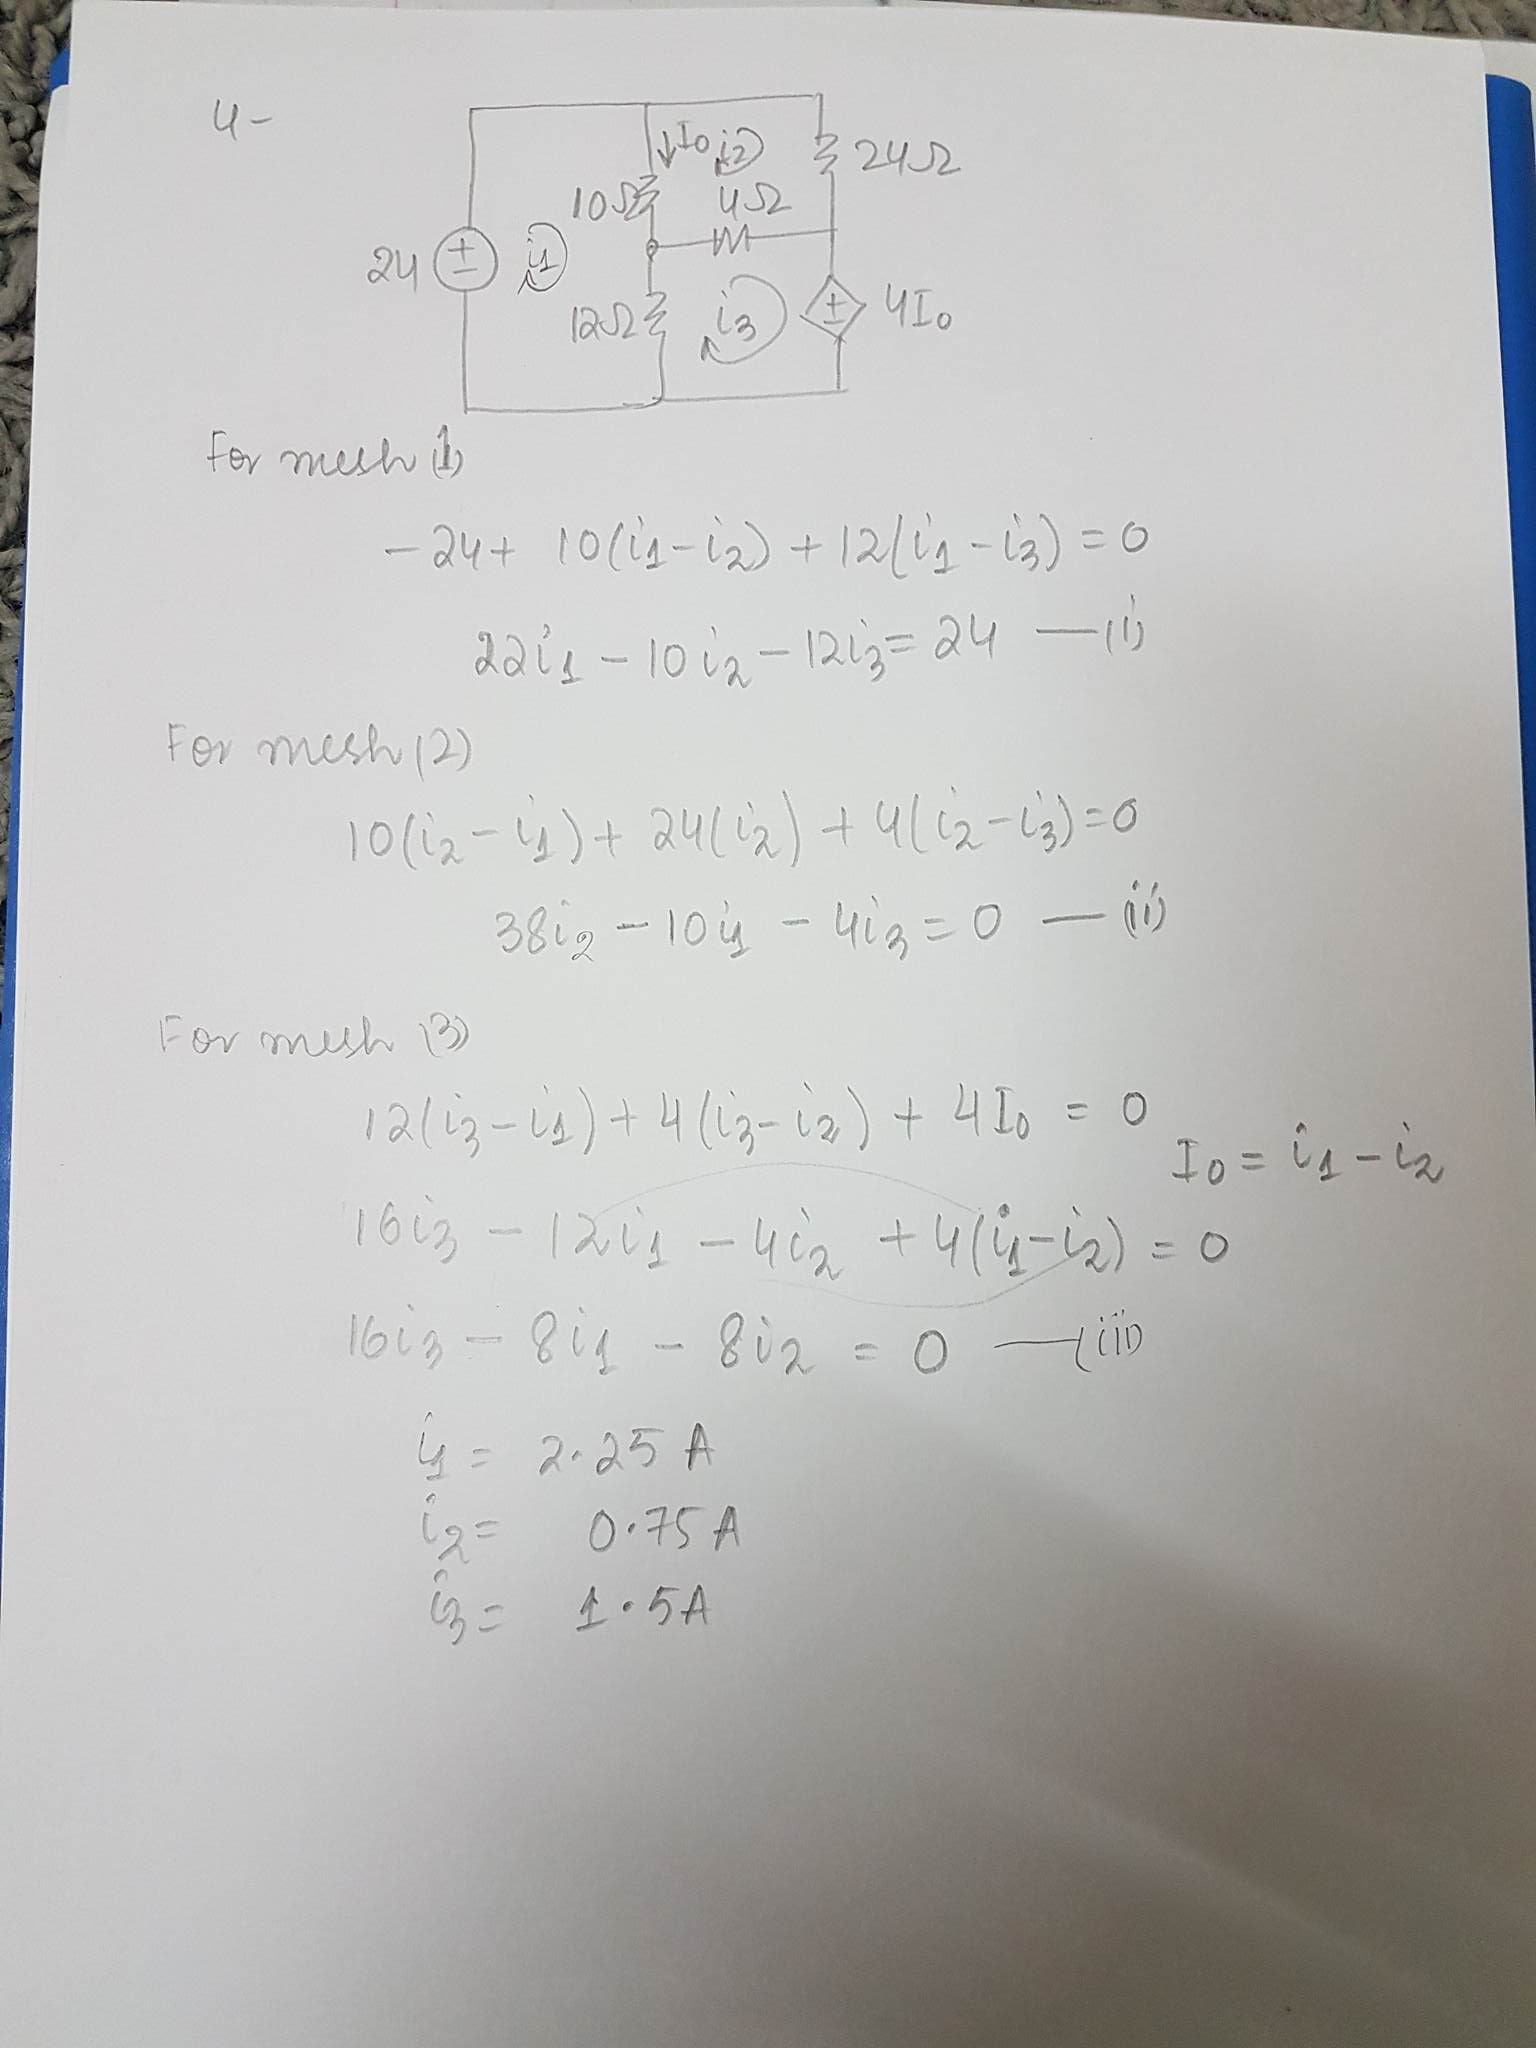 4-
I0 i2 24Ω
10Ω 4Ω
24 + - i1
12Ω i3 + - 4I0
For mesh (1)
-24 + 10(i1-i2) + 12(i1-i3) = 0
22i1 - 10i2 - 12i3 = 24 — (i)
For mesh (2)
10(i2-i1) + 24(i2) + 4(i2-i3) = 0
38i2 - 10i1 - 4i3 = 0 — (ii)
For mesh (3)
12(i3-i1) + 4(i3-i2) + 4I0 = 0
I0 = i1 - i2
16i3 - 12i1 - 4i2 + 4(i1-i2) = 0
16i3 - 8i1 - 8i2 = 0 — (iii)
i1 = 2.25 A
i2 = 0.75 A
i3 = 1.5 A